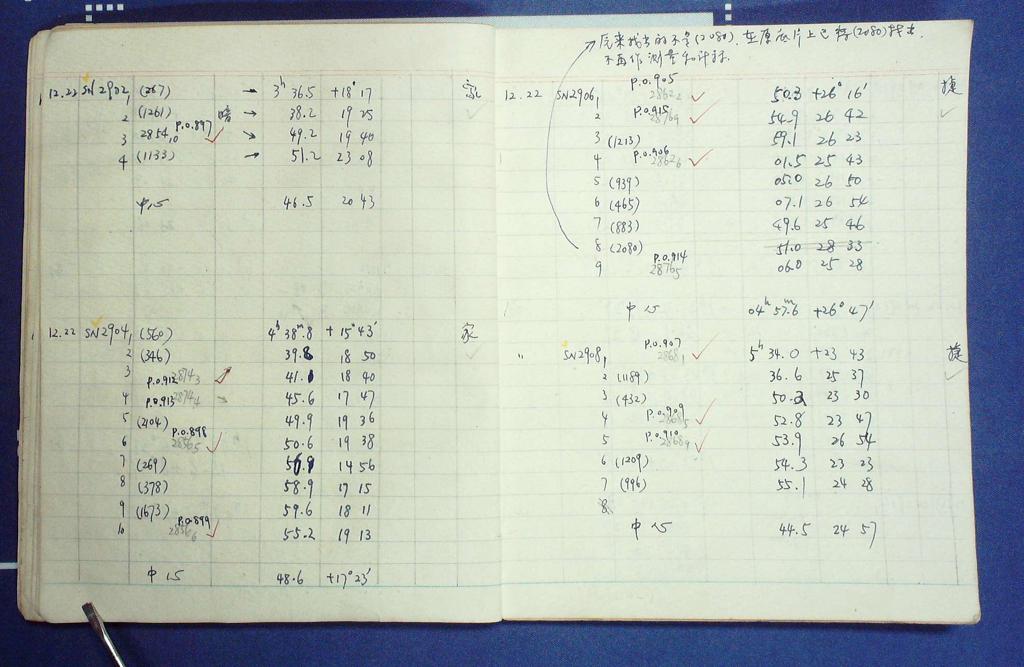 12.22 SN2902, 1 (267) → 3h 36.5 +18° 17 家
2 (1261) 暗 → 38.2 19 25
3 2854₁₀ P.O.897 ✓ → 49.2 19 40
4 (1133) → 51.2 23 08
中心 46.5 20 43
12.22 SN2904, 1 (560) 4h 38m.8 +15° 43′ 家
2 (346) 39.8 18 50
3 P.O.912 2874₃ ✓ 41.1 18 40
4 P.O.913 2874₄ 45.6 17 47
5 (2104) 49.9 19 36
6 P.O.898 2856₅ ✓ 50.6 19 38
7 (269) 14 56
8 (378) 58.9 17 15
9 (1673) 59.6 18 11
10 P.O.899 2856₆ ✓ 55.2 19 13
中心 48.6 +17° 23′
原来找出的不是(2080), 在原底片上已将(2080)找出
不再作测量和计标
12.22 SN2906, 1 P.O.905 2862₂ ✓ 50.3 +26° 16′ 捷
2 P.O.915 2876₉ ✓ 54.9 26 42
3 (1213) 59.1 26 23
4 P.O.906 2862₆ ✓ 01.5 25 43
5 (939) 05.0 26 50
6 (465) 07.1 26 54
7 (883) 49.6 25 46
8 (2080) 51.0 28 33
9 P.O.914 2876₅ 06.0 25 28
中心 04h 57m.6 +26° 47′
〃 SN2908, 1 P.O.907 2868₁ ✓ 5h 34.0 +23 43 捷
2 (1189) 36.6 25 37
3 (432) 50.2 23 30
4 P.O.909 2868₅ ✓ 52.8 23 47
5 P.O.910 2868₉ ✓ 53.9 26 54
6 (1209) 54.3 23 23
7 (996) 55.1 24 28
8
中心 44.5 24 57